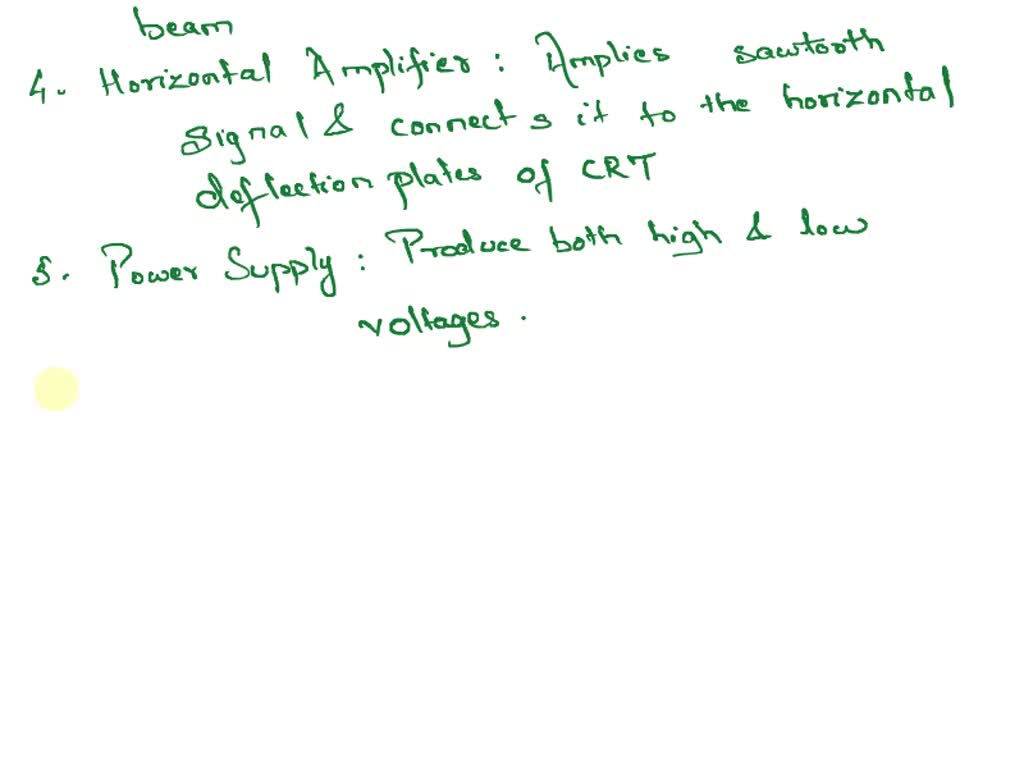 beam
4. Horizontal Amplifier : Amplies sawtooth
signal & connects it to the horizontal
deflection plates of CRT
5. Power Supply : Produce both high & low
voltages.